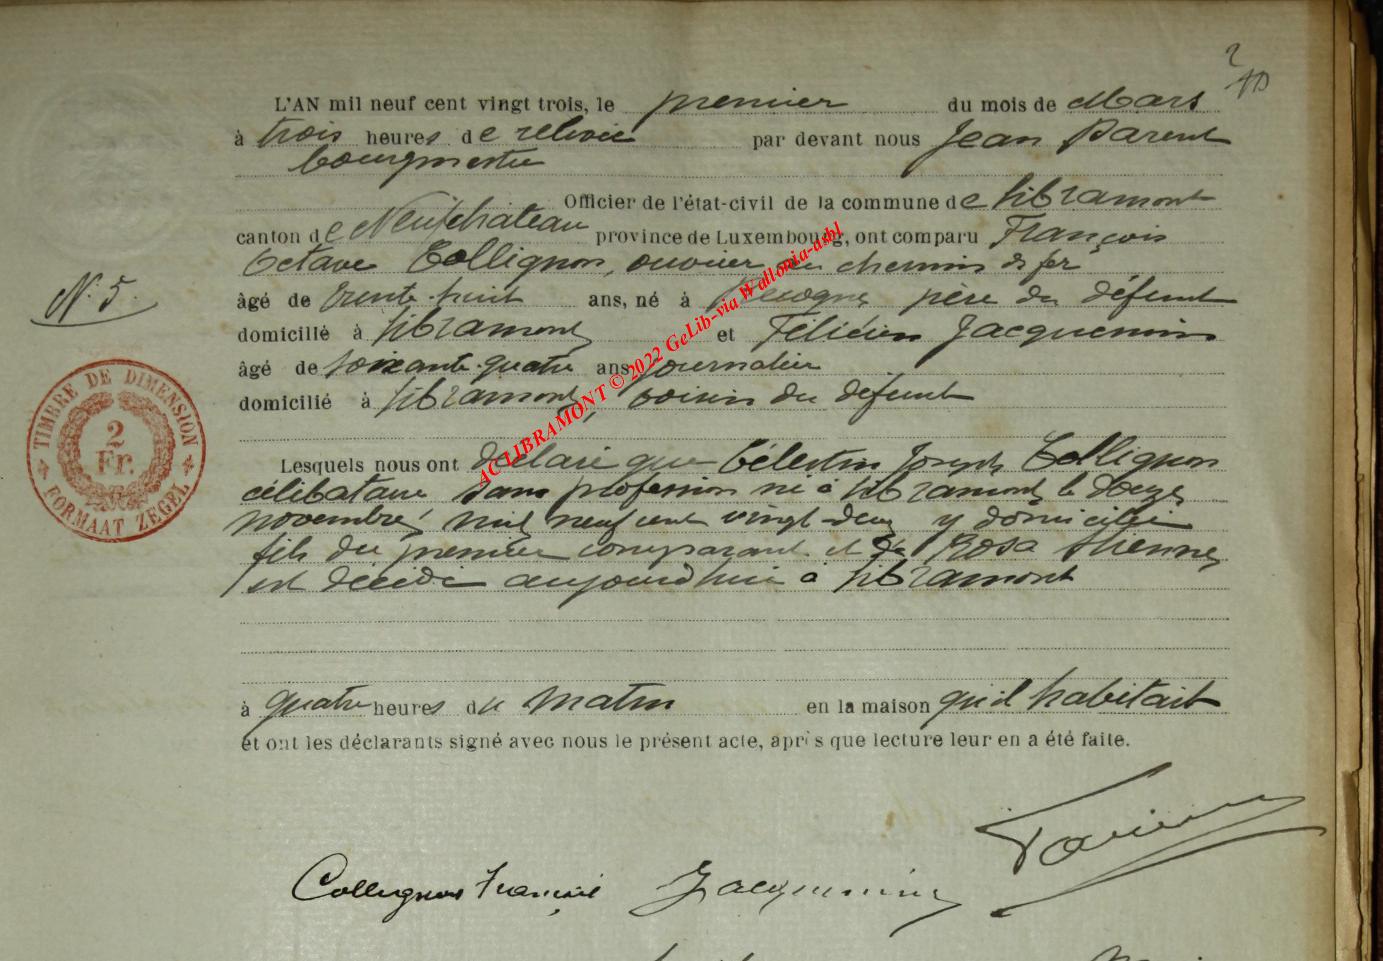 L'AN mil neuf cent vingt trois, le premier du mois de Mars
à trois heures de relevée par devant nous Jean Parent
bourgmestre
Officier de l'état-civil de la commune de Libramont
canton de Neufchâteau province de Luxembourg, ont comparu François
Octave Collignon, ouvrier au chemin de fer
N. 5.
âgé de trente-huit ans, né à Recogne père du défunt
domicilié à Libramont et Félicien Jacquemin
âgé de soixante-quatre ans journalier
domicilié à Libramont, voisin du défunt
TIMBRE DE DIMENSION
2
Fr.
FORMAAT ZEGEL
Lesquels nous ont déclaré que Célestin Joseph Collignon
célibataire sans profession né à Libramont le douze
novembre mil neuf cent vingt-deux y domicilié
fils du premier comparant et de Rosa
est décédé aujourd'hui à Libramont
à quatre heures du matin en la maison qu'il habitait
et ont les déclarants signé avec nous le présent acte, après que lecture leur en a été faite.
Collignon François Jacquemin
ACLIBRAMONT © 2022 GeLib-via Wallonia-asbl